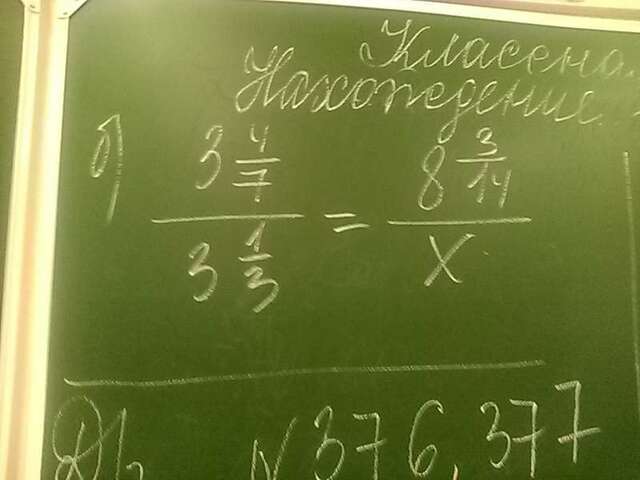 Классена
Нахождение
б) 3 4/7 / 3 1/3 = 8 3/14 / x
N 376, 377